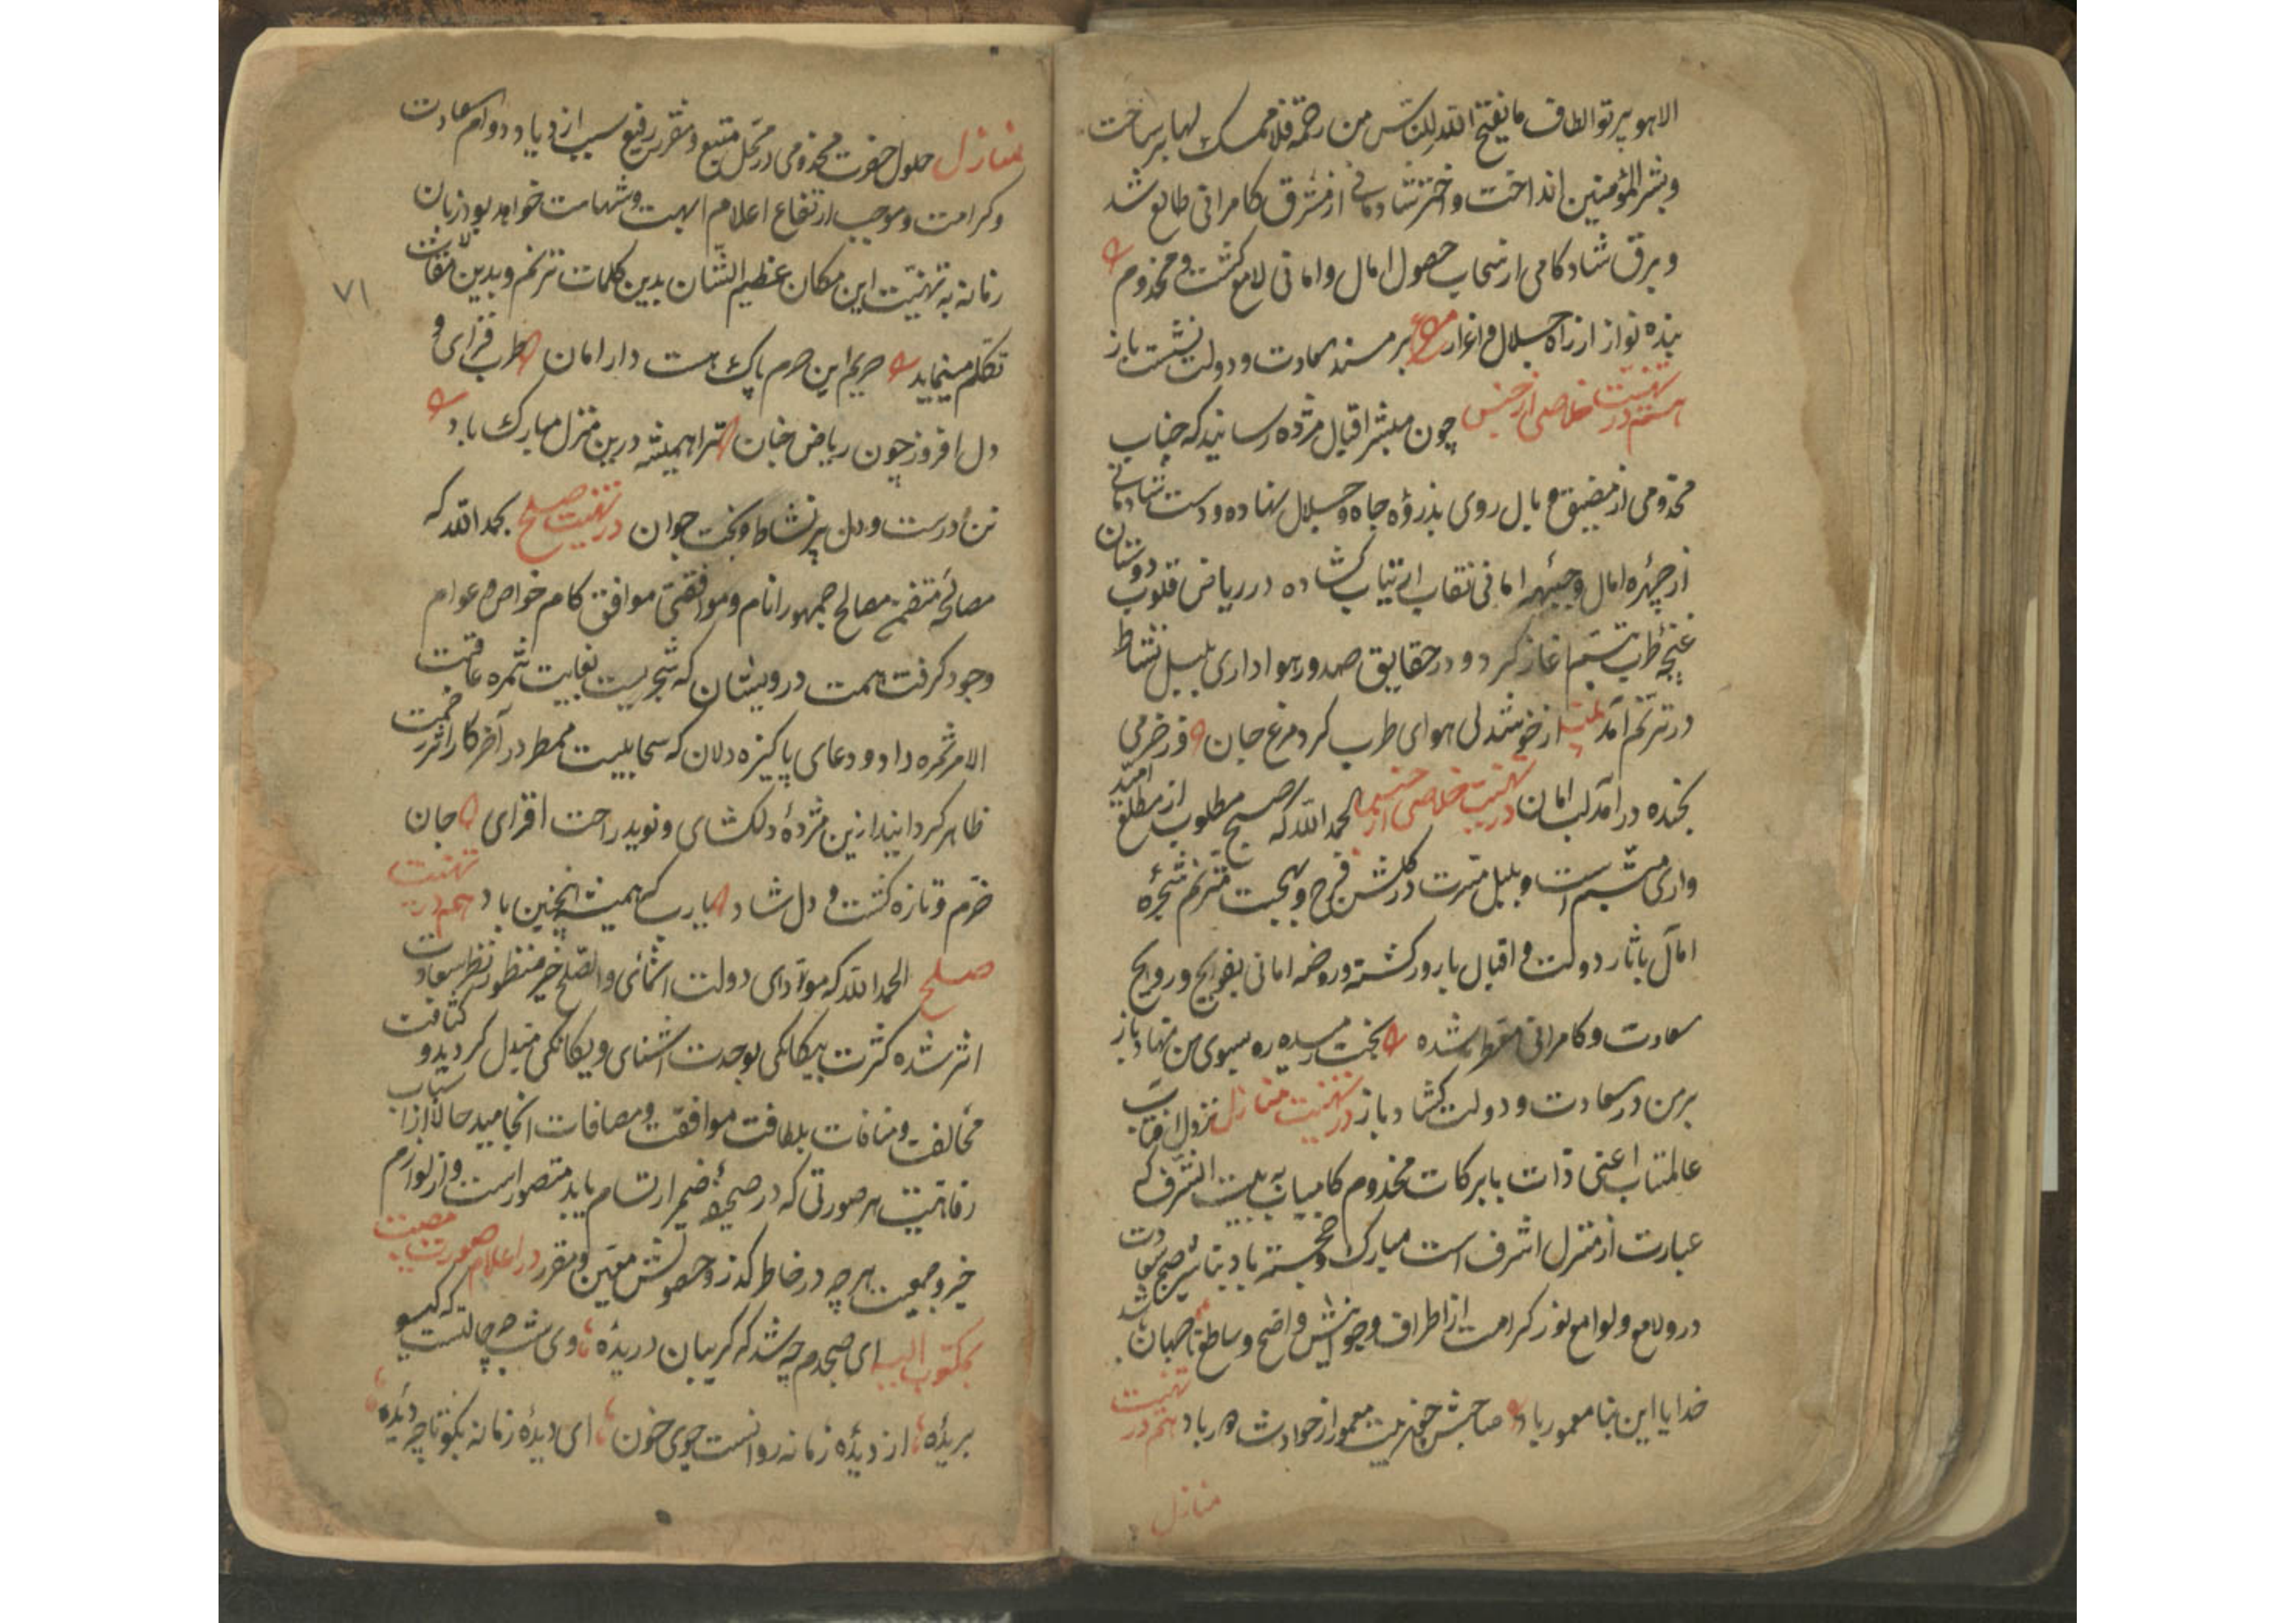 الا هو پرتو الطاف ما یفتح الله للناس من رحمة فلا ممسک لها بر ساخت
وبشر المؤمنین انداخت و اختر شادمانی از مشرق کامرانی طالع شد
و برق شادکامی از سحاب حصول امال و امانی لامع کشت و مخدوم
بنده نواز از راه جلال و اعزاز بر مسند سعادت و دولت نشست باز
تهنیت خلاصی از حبس چون مبشر اقبال مژده رسانید که جناب
مخدومی از مضیق وبال روی بذروه جاه و جلال نهاده و دست شادمانی
از چهره امال و جبهه امانی نقاب ارتیاب کشاده در ریاض قلوب دوستان
غنچه طرب تبسم اغاز کرد و در حقایق صدور هواداری بلبل نشاط
در ترنم آمد از خوشدلی هوای طرب کرد مرغ جان وز خرمی
بخنده در آمد لب امان در تهنیت خلاصی از حبس الحمد الله که صبح مطلوب از مطلع امید
واری متبسم است و بلبل مسرت در کلشن فرح و بهجت مترنم شجره
امال باثار دولت و اقبال بارور کشته و روضه امانی بفوایح و روایح
سعادت و کامرانی معطر شده بخت رمیده ره بسوی من نهاد باز
بر من در سعادت و دولت کشاد باز در تهنیت منازل نزول آفتاب
عالمتاب اعنی ذات بابرکات مخدوم کامیاب به بیت الشرف که
عبارت از منزل اشرف است مبارک و خجسته باد تباشیر صبح سعادت
درو لامع و لوامع نور کرامت از اطراف و حواشیش واضح و ساطع
خدایا این بنا معمور باد صاحبش از حوادث دور باد هم در تهنیت
منازل
منازل حلول حضرت مخدومی در محل منیع و مقر رفیع سبب ازدیاد دوام سعادت
و کرامت و موجب ارتفاع اعلام ابهت و شهامت خواهد بود زبان
زمانه به تهنیت این مکان عظیم الشان بدین کلمات ترنم و بدین مقالات
تکلم مینماید حریم این حرم پاک هست دار امان طرب فزای و
دل افروز چون ریاض جنان ترا همیشه درین منزل مبارک باد
تن درست و دل پر نشاط و بخت جوان در تهنیت صلح بحمد الله که
مصالحه متضمن مصالح جمهور انام و موافقتی موافق کام خواص و عوام
وجود کرفت همت درویشان که شجریست بغایت ثمره عاقبت
الامر ثمره داد و دعای پاکیزه دلان که سحابیست ممطر در آخر کار اثر رحمت
ظاهر کردانید ازین مژده دلکشای و نوید راحت افزای جان
خرم و تازه کشت و دل شاد یارب که همیشه اینچنین باد هم در تهنیت
صلح الحمد الله که مودای دولت اشنائی و الصلح خیر منظور نظر سعادت
اثر شده کثرت بیکانکی بوحدت اشنای و یکانکی مبدل کردید و کثافت
مخالفت و منافات بلطافت موافقت و مصافات انجامید حالا از اسباب
رفاهیت هر صورتی که در صحیفه ضمیر ارتسام یابد متصور است و از لوازم
خیر و جمعیت هر چه در خاطر کذرد حصولش معین و مقرر در اعلام صورت مصیبت
بمکتوب الیه ای صبحدم چه شد که کریبان دریده وی شب چه حالتست که کیسو
بریده از دیده زمانه روانست جوی خون ای دیده زمانه بکو تا چه دیده
۷۱